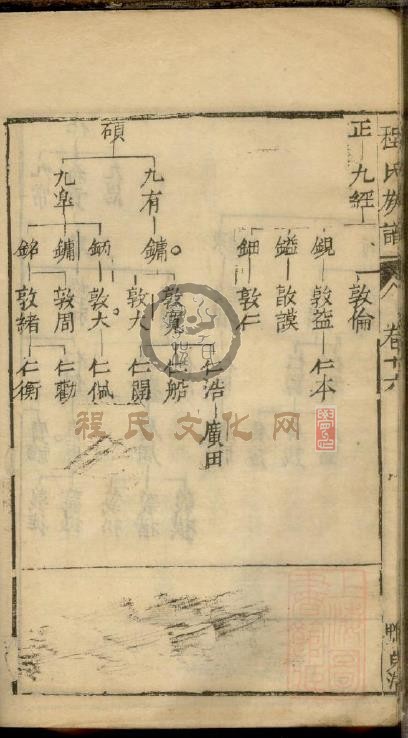 程氏族譜 卷十六
正 九經
敦倫
鋧 敦益 仁本
鎰 敦謨
鈿 敦仁
碩
九有
鏞 敦寬 仁浩 廣田
仁船
敦大 仁開
鈵 敦大 仁佩
九皋
鏞 敦周 仁勸
銘 敦緒 仁衡
程氏文化网